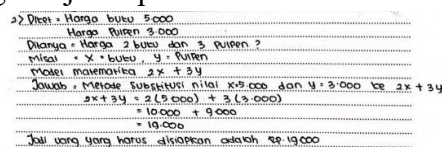 2) Diket = Harga buku 5.000
Harga Pulpen 3.000
Ditanya = Harga 2 buku dan 3 Pulpen ?
Misal = X = buku, y = Pulpen
Model matematika 2x + 3y
Jawab = Metode Substitusi nilai x=5.000 dan y = 3.000 ke 2x + 3y
2x + 3y = 2 (5 000) + 3 (3.000)
= 10.000 + 9000
= 19.000
Jadi uang yang harus disiapkan adalah Rp. 19.000